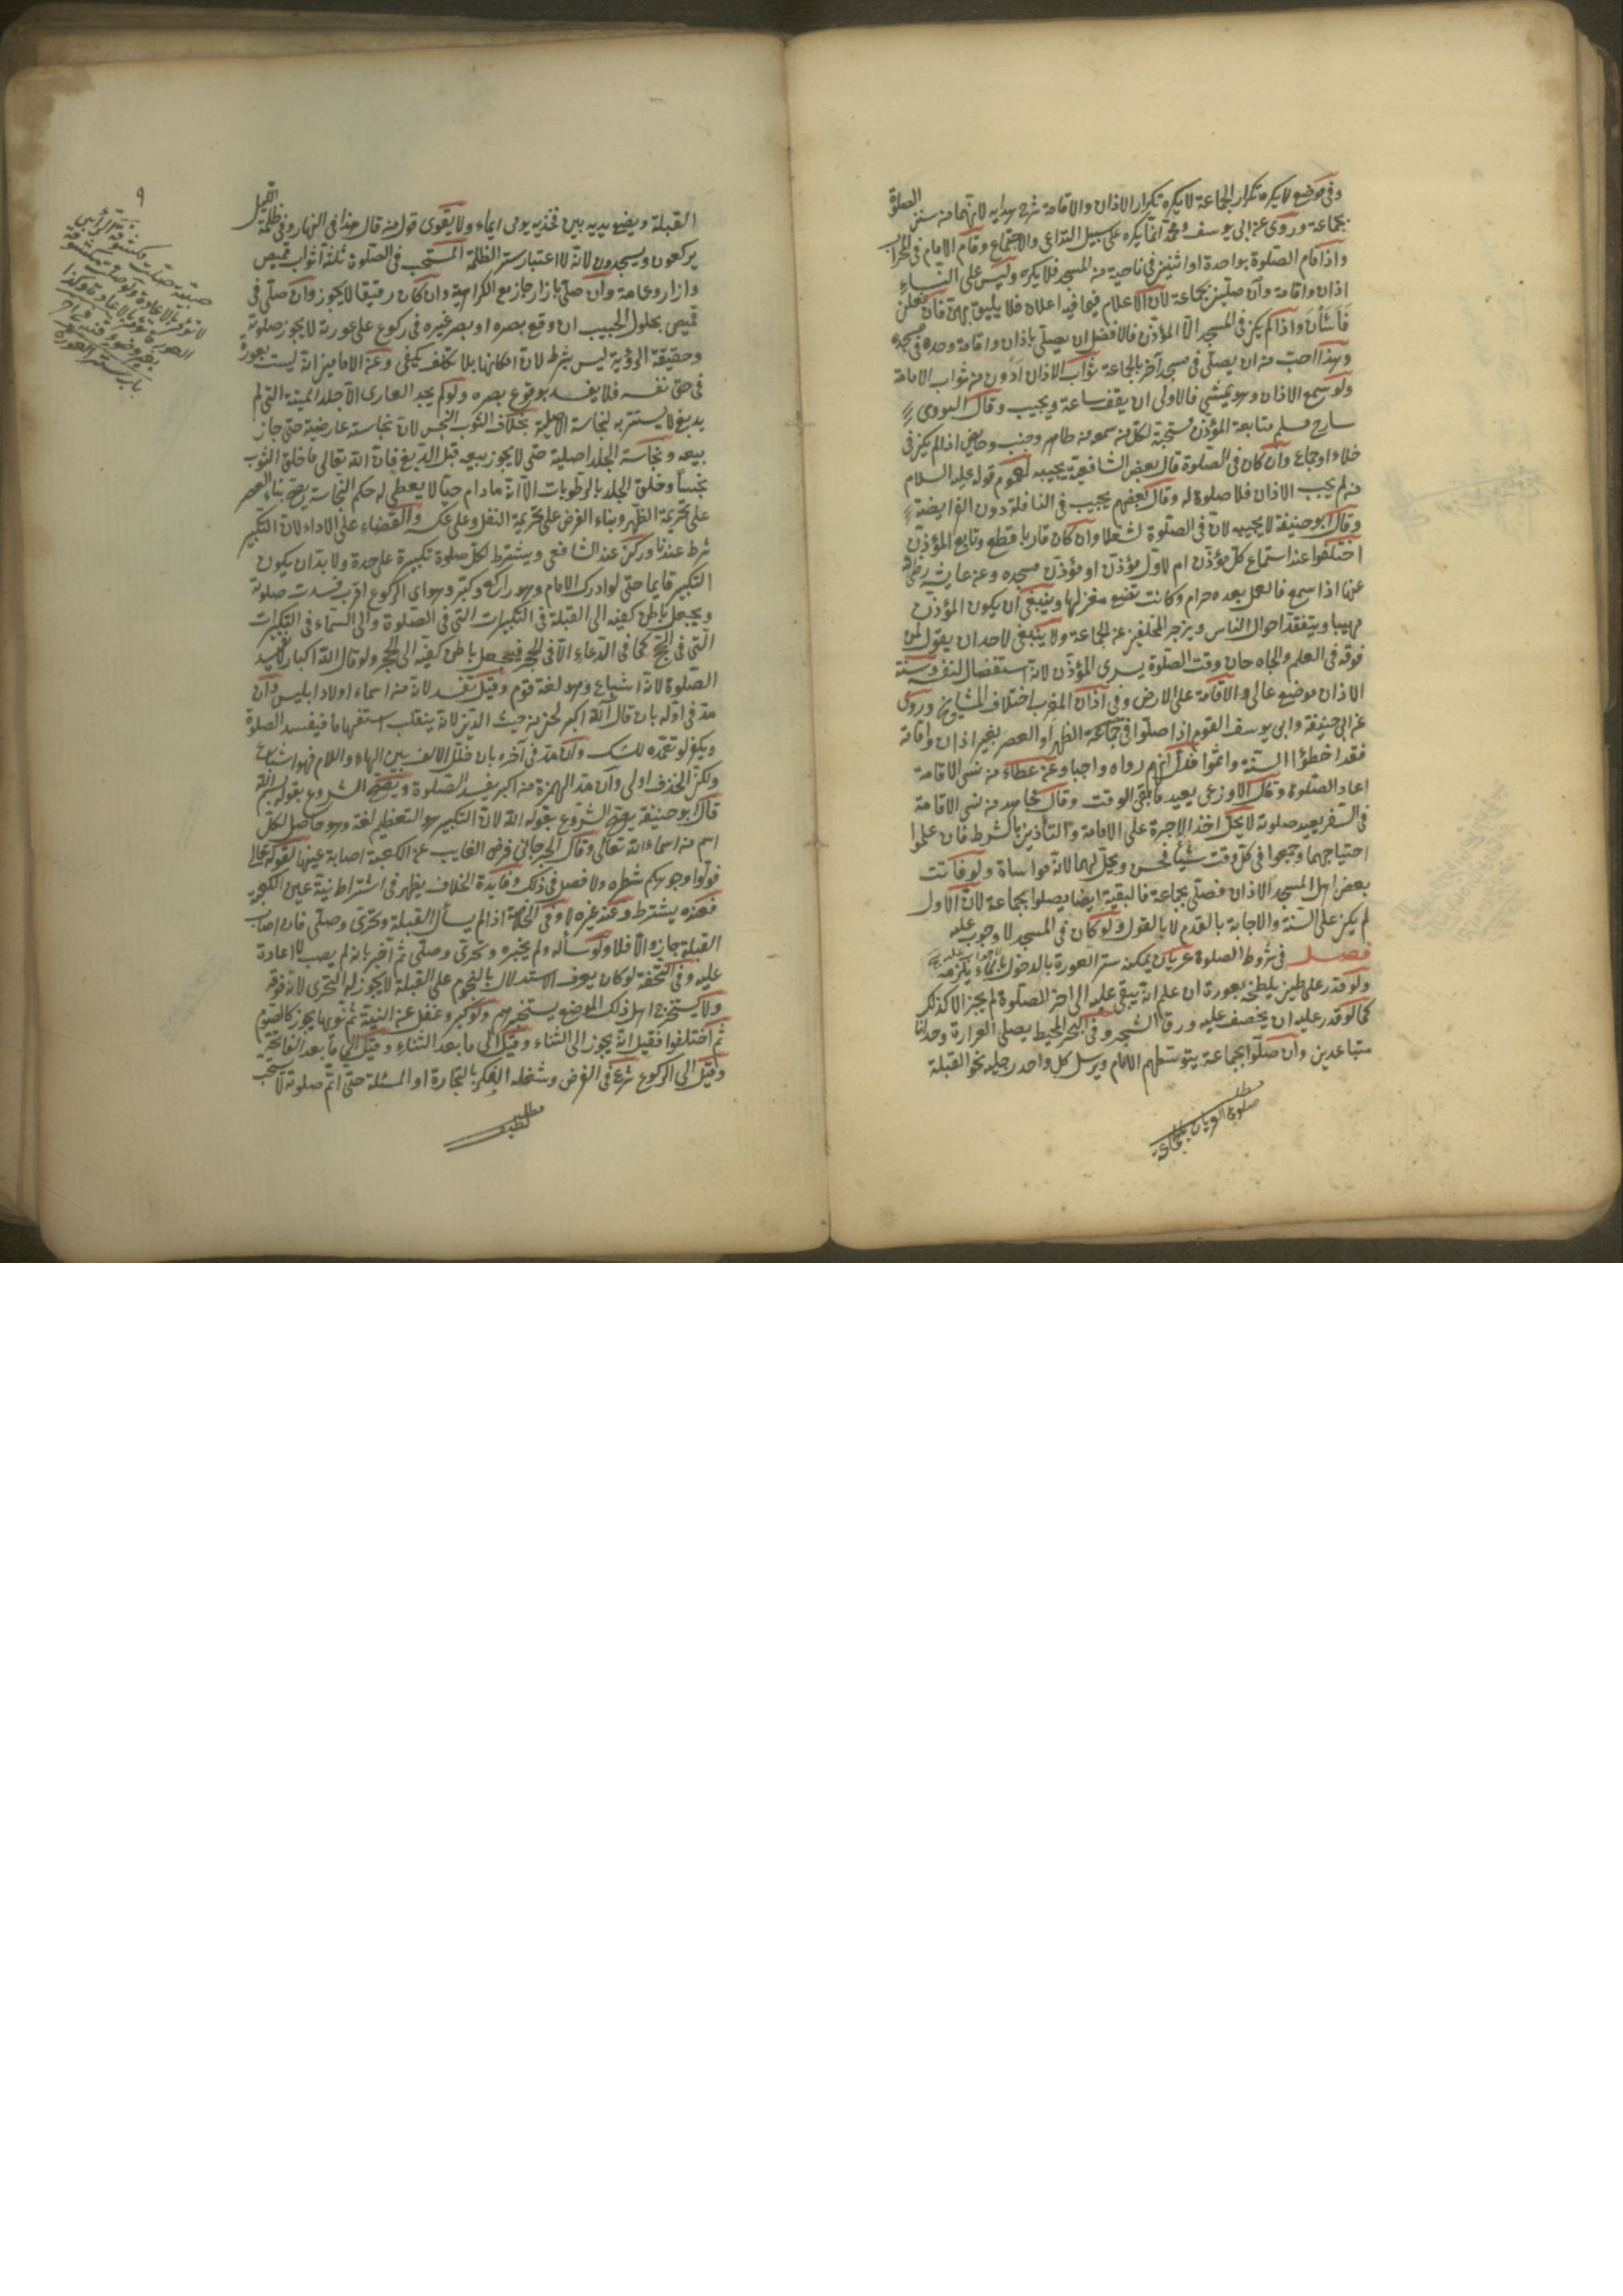 وفى موضع لا يكره تكرار الجماعة لا يكره تكرار الاذان والاقامة شرح هدايه لانهما من سنن الصلوة
بجماعة وروى عن ابى يوسف ومحمد انما يكره على سبيل التداعى والاجتماع وقام الامام فى المحراب
واذا قام الصلوة بواحدة او اثنين فى ناحية من المسجد فلا يكره وليس على النساء
اذان واقامة وان صلين بجماعة لان الاعلام فيما فيه اعلان فلا يليق بهن فان فعلن
فأسأن واذا لم يكن فى المسجد الا المؤذن فالافضل ان يصلى باذان واقامة وحده فى مسجده
وهذا احب من ان يصلى فى مسجد آخر بالجماعة ثواب الاذان ادون من ثواب الامامة
ولو سمع الاذان وهو يمشى فالاولى ان يقف ساعة ويجيب وقال النووى
شارح مسلم متابعة المؤذن مستحبة لكل من سمعه من طاهر وجنب وحائض اذا لم يكن فى
خلاء او جماع وان كان فى الصلوة قال بعض الشافعية يجيبه لعموم قوله عليه السلام
من لم يجب الاذان فلا صلوة له وقال بعضهم يجيب فى النافلة دون الفريضة
وقال ابو حنيفة لا يجيبه لان فى الصلوة لشغلا وان كان قاريا قطع وتابع المؤذن
اختلفوا عند استماع كل مؤذن ام لاول مؤذن او مؤذن مسجده وعن عايشة رضى الله
عنها اذا سمع فالعمل بعده حرام وكانت تضع مغزلها وينبغى ان يكون المؤذن
مهيبا ويتفقد احوال الناس ويزجر المتخلفين عن الجماعة ولا ينبغى لاحد ان يقول لمن
فوقه فى العلم والجاه حان وقت الصلوة سوى المؤذن لانه استفضال لنفسه وسنة
الاذان موضع عالى والاقامة على الارض وفى اذان المغرب اختلاف المشايخ وروى
عن ابى حنيفة وابى يوسف القوم اذا صلوا فى جماعة الظهر او العصر بغير اذان واقامة
فقد اخطؤا السنة واثموا فدل انهم رواه واجبا وعن عطاء من نسى الاقامة
اعاد الصلوة وقال الاوزعى يعيد ما بقى الوقت وقال مجاهد من نسى الاقامة
فى السفر يعيد صلوته لا يحل اخذ الاجرة على الامامة والتأذين بالشرط فان علموا
احتياجهما وجمعوا فى كل وقت شيئا فحسن ويحل لهما لانه مواساة ولو فاتت
بعض اهل المسجد الاذان فصلى بجماعة فالبقية ايضا يصلوا بجماعة لان الاول
لم يكن على السنة والاجابة بالقدم لا بالقول ولو كان فى المسجد لا وجوب عليه
فصل فى شروط الصلوة عريان يمكنه ستر العورة بالدخول بالماء يلزمه
ولو قدر على طين يلطخه بعورة ان علم انه يبقى عليه الى اخر الصلوة لم يجز الا كذلك
كما لو قدر عليه ان يخصف عليه ورق الشجر وفى البحر المحيط يصلى العراة وحدانا
متباعدين وان صلوا بجماعة يتوسطهم الامام ويرسل كل واحد رجليه نحو القبلة
مطلب
صلوة العريان بجماعة
٩
القبلة ويضع يديه بين فخذيه يومى ايماء ولا يقوى قوله منه قال هذا فى النهار وفى ظلمة الليل
يركعون ويسجدون لانه لا اعتبار ستر الظلمة المستحب فى الصلوة ثلثة اثواب قميص
وازار وعمامة وان صلى بازار جاز مع الكراهية وان كان رقيقا لا يجوز وان صلى فى
قميص محلول الجيب ان وقع بصره او بصر غيره فى ركوع على عورته لا يجوز صلوته
وحقيقة الرؤية ليس بشرط لان امكانها بلا تكلف يكفى وعن الامامين انه ليست بعورة
فى حق نفسه فلا يفسد بوقوع بصره ولو لم يجد العارى الا جلد الميتة التى لم
يدبغ لا يستتر به لنجاسة الاصلية بخلاف الثوب النجس لان نجاسته عارضية حتى جاز
بيعه ونجاسة الجلد اصلية حتى لا يجوز بيعه قبل الدبغ فان الله تعالى ما خلق الثوب
نجسا وخلق الجلد بالرطوبات الا انه ما دام حيا لا يعطى له حكم النجاسة يصح بناء العصر
على تحريمة الظهر وبناء الفرض على تحريمة النفل وعلى عكسه والقضاء على الاداء لان التكبير
شرط عندنا وركن عند الشافعى ويشترط لكل صلوة تكبيرة على حدة ولا بد ان يكون
التكبير قايما حتى لو ادرك الامام وهو راكع وكبر وهو اى الركوع اقرب فسدت صلوته
ويجعل باطن كفيه الى القبلة فى التكبيرات التى فى الصلوة والى السماء فى التكبيرات
التى فى الحج كما فى الدعاء الا فى الحجر فيجعل باطن كفيه الى الحجر ولو قال الله اكبار لا يفسد
الصلوة لانه اشباع وهو لغة قوم وقيل تفسد لانه من اسماء اولاد ابليس وان
مد فى اوله بان قال آلله اكبر لحن من حيث الدين لانه ينقلب استفهاما فيفسد الصلوة
ويكفر لو تعمده للشك وان مد فى آخره بان خلل الالف بين الهاء واللام فهو اشباع
ولكن الحذف اولى وان مد الهمزة من اكبر يفسد الصلوة ويصح الشروع بقوله بسم الله
قال ابو حنيفة يصح الشروع بقوله الله لان التكبير هو التعظيم لغة وهو حاصل لكل
اسم من اسماء الله تعالى وقال الجرجانى فرض الغايب عن الكعبة اصابة عينها لقوله تعالى
فولوا وجوهكم شطره ولا فصل فى ذلك وفايدة الخلاف يظهر فى اشتراط نية عين الكعبة
فعنده يشترط وعند غيره لا وفى الخلاصة اذا لم يسأل القبلة وتحرى وصلى فان اصاب
القبلة جاز والا فلا ولو سأله ولم يخبره وتحرى وصلى ثم اخبر بانه لم يصب لا اعادة
عليه وفى التحفة لو كان يعرف الاستدلال بالنجوم على القبلة لا يجوز له التحرى لانه فوقه
ولا يستخرج اهل ذلك الموضع يستخبرهم ولو كبر وغفل عن النية ثم نويها يجوز كالصوم
ثم اختلفوا فقيل انه يجوز الى الثناء وقيل الى ما بعد الثناء وقيل الى ما بعد الفاتحة
وقيل الى الركوع شرع فى الفرض وشغله الفكر بالتجارة او المسئلة حتى اتم صلوته لا يستحب
مطلب
لطيف